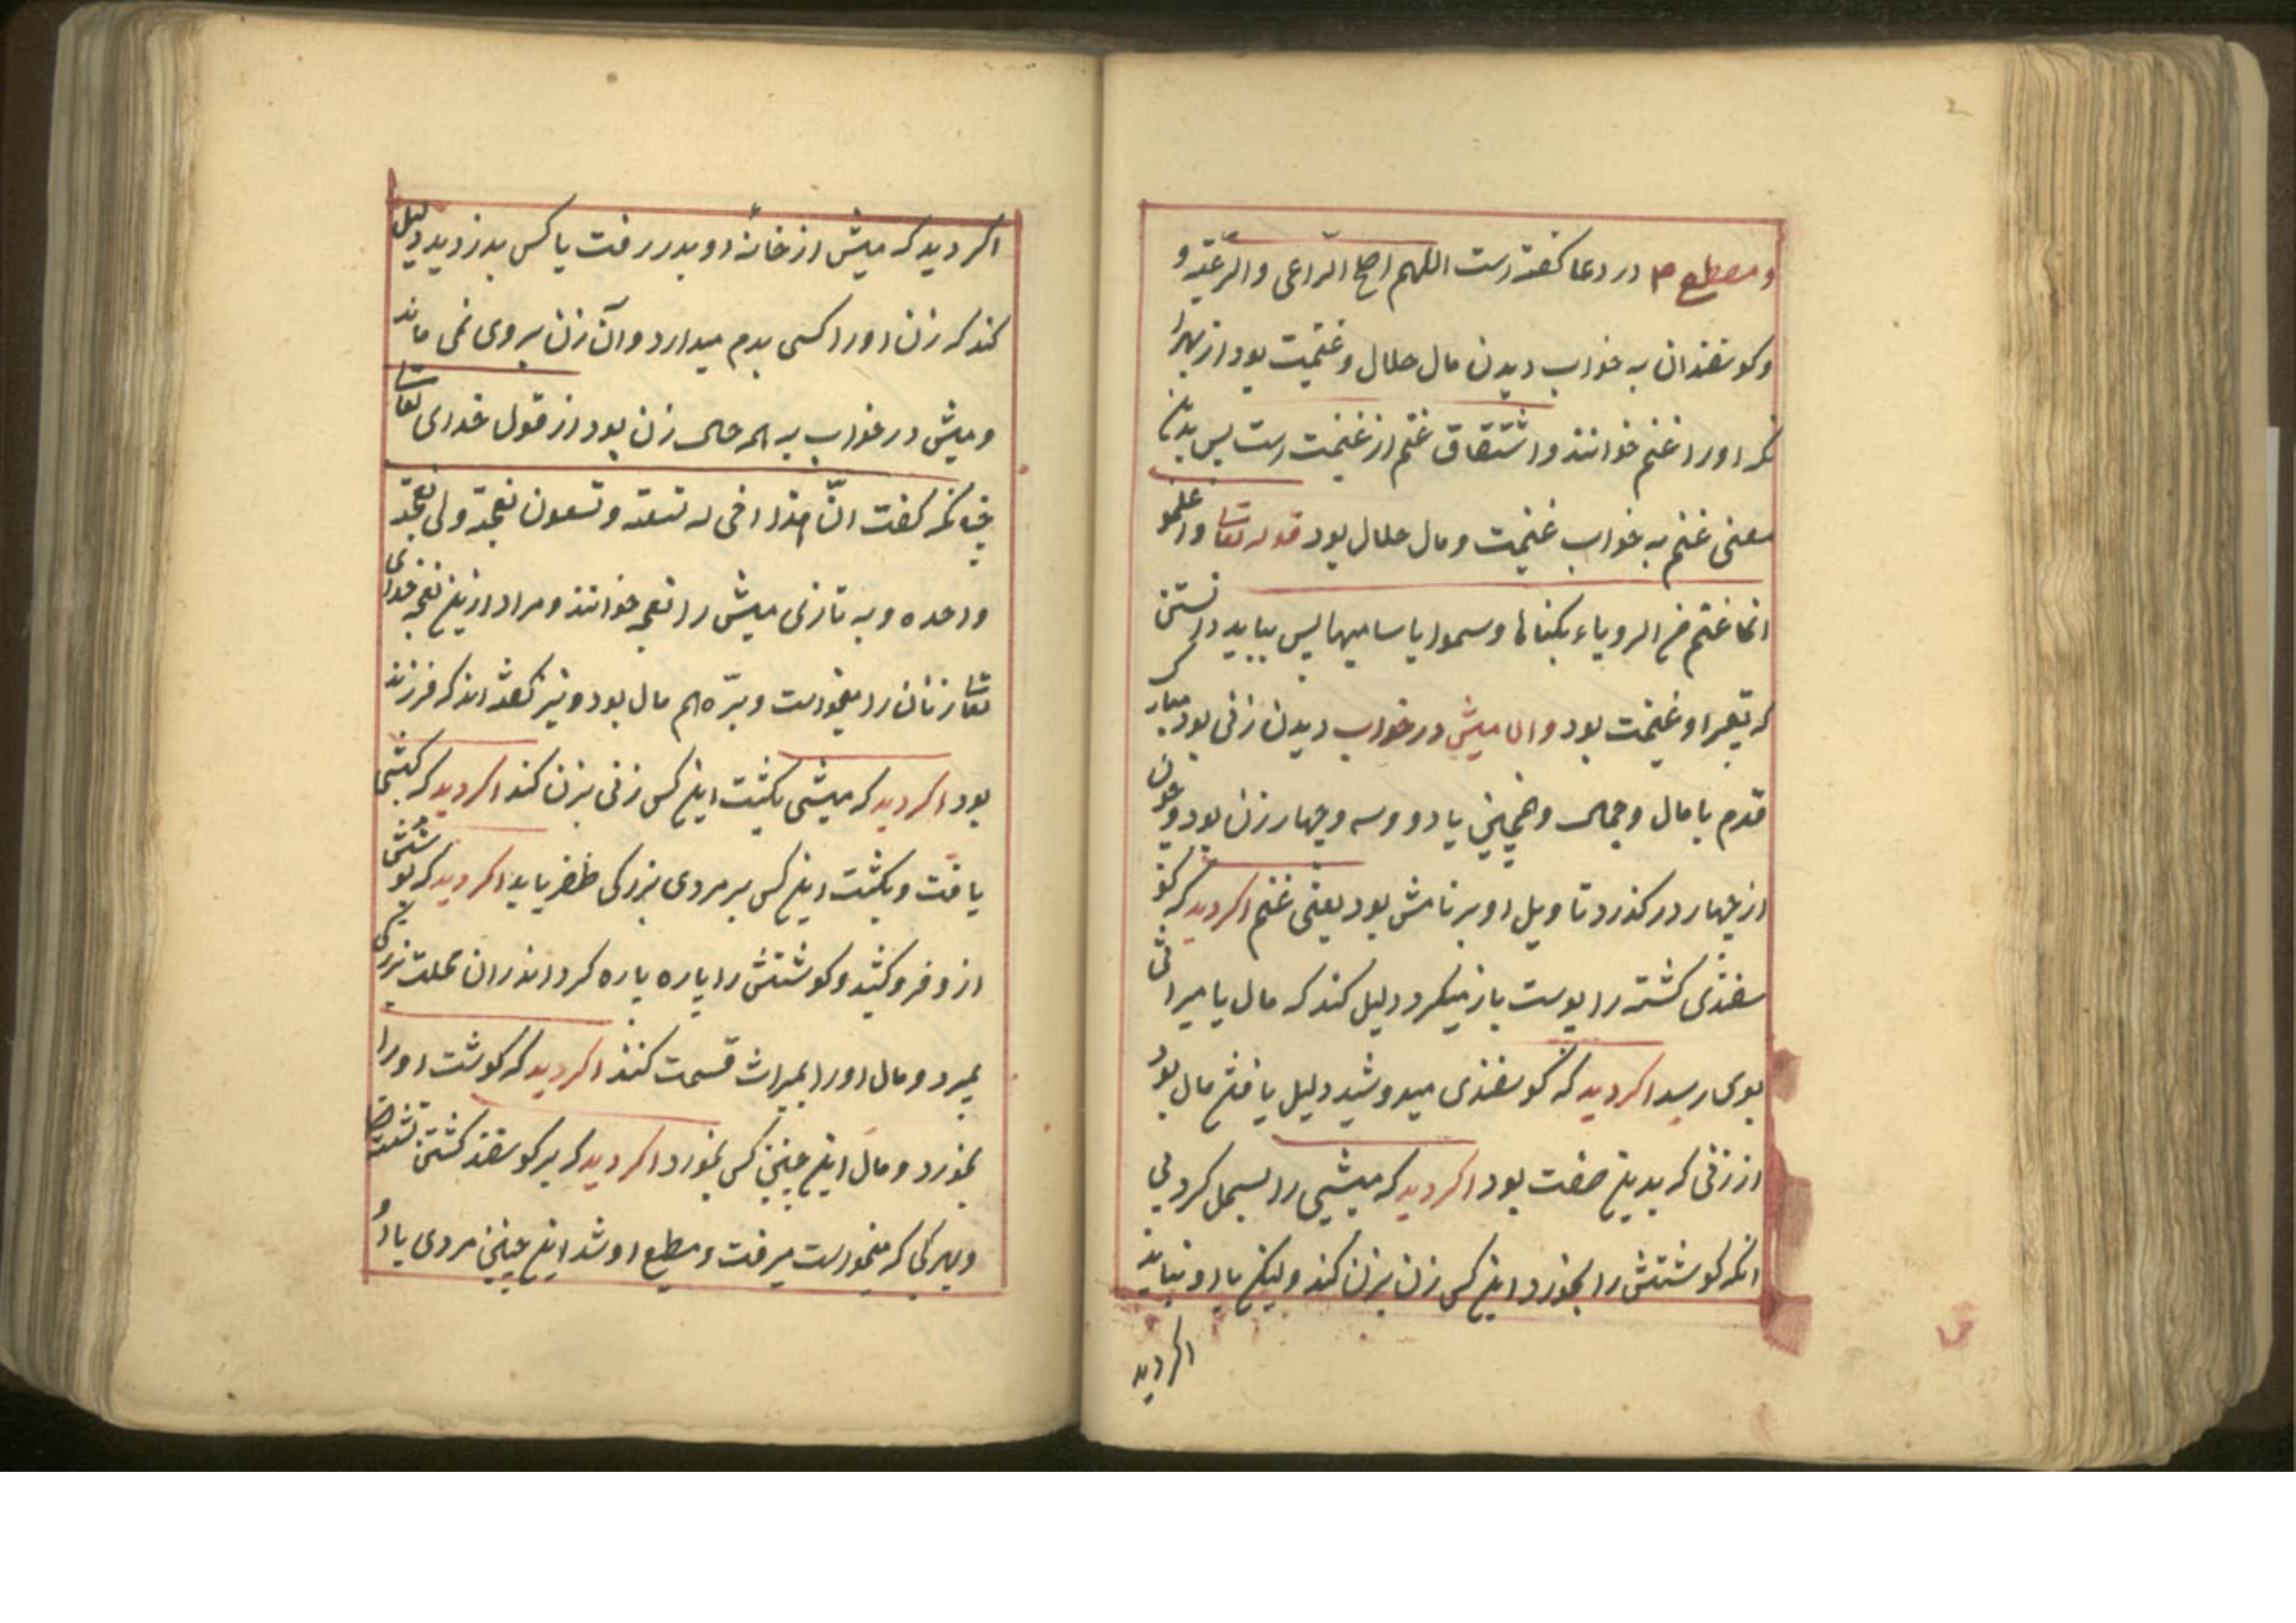 و مصطفی صم در دعا کفته است اللهم اصلح الراعی والرعیة و
و کوسفندان به خواب دیدن مال حلال و غنیمت بود از بهر
که او را غنم خوانند و اشتقاق غنم از غنیمت است پس بدین
معنی غنم به خواب غنیمت و مال حلال بود قوله تعا واعلموا
انما غنتم من الرویاء بکناها وسموا یاسامیها پس بباید دانستن
که تعبیر او غنیمت بود و اما میش در خواب دیدن زنی بود مبارک
قدم با مال و جمال و همچنین یا دو و سه و چهار زن بود و چون
از چهار در کذرد تاویل او بر نامش بود یعنی غنم اکر دید که کو
سفندی کشته را پوست باز میکرد دلیل کند که مال یا میراثی
بوی رسد اکر دید که کوسفندی میدوشید دلیل یافتن مال بود
از زنی که بدین صفت بود اکر دید که میشی را بسمل کرد بی
انکه کوشتش را بخورد این کس زن بزن کند ولیکن با او نباید
اکر دید
اکر دید که میش از خانهٔ او بدر رفت یا کس بدزدید دلیل
کند که زن او را کسی بدم میدارد و آن زن بروی نمی ماند
و میش در خواب به هر حال زن بود از قول خدای تعا
چنانکه کفت انّ هذا اخی له تسعة و تسعون نعجة ولی نعجة
واحده و به تازی میش را نعجه خوانند و مراد ازین نعجه خدای
تعا زنان را میخواست و برّه هم مال بود و نیز کفته اند که فرزند
بود اکر دید که میشی بکشت این کس زنی بزن کند اکر دید که کبشی
یافت و بکشت این کس بر مردی بزرکی ظفر یابد اکر دید که پوستش
ازو فرو کشید و کوشتش را پاره پاره کرد اندران محلت بزرکی
بمیرد و مال او را بمیراث قسمت کنند اکر دید که کوشت او را
بخورد و مال این چنین کس بخورد اکر دید که بر کوسفند کشتن نشسته
و بهر کی که میخواست میرفت و مطیع او شد این چنین مردی یا او